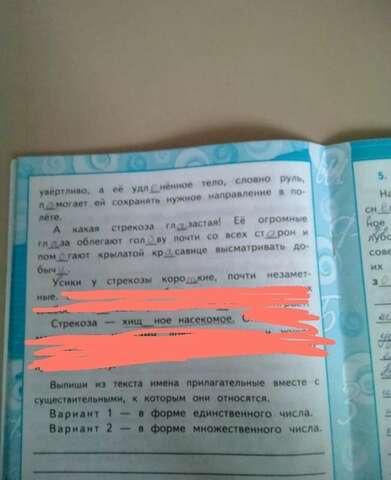 увёртливо, а её удлинённое тело, словно руль,
помогает ей сохранять нужное направление в по-
лёте.
А какая стрекоза глазастая! Её огромные
глаза облегают голову почти со всех сторон и
помогают крылатой красавице высматривать до-
бычу.
Усики у стрекозы короткие, почти незамет-
ные.
Стрекоза — хищ_ное насекомое.
Выпиши из текста имена прилагательные вместе с
существительными, к которым они относятся.
Вариант 1 — в форме единственного числа.
Вариант 2 — в форме множественного числа.
5.
На
сн
ное
лубо
сове
их
з